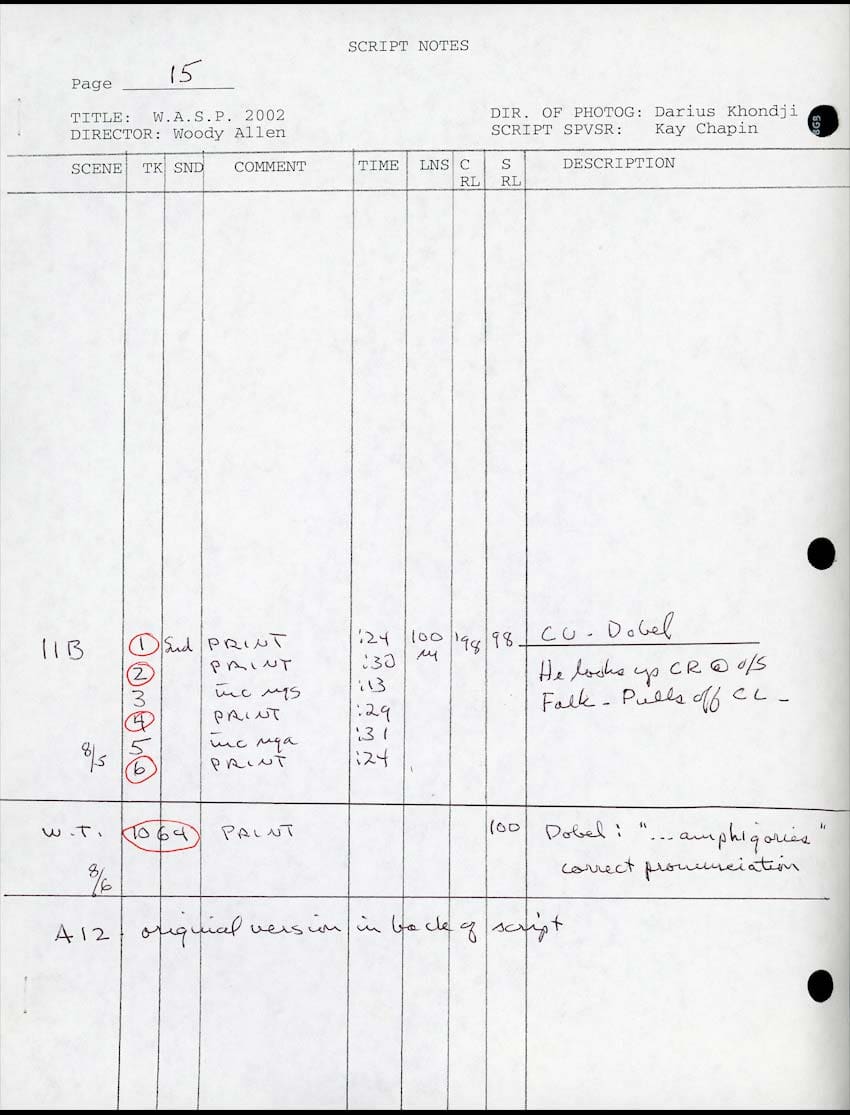 SCRIPT NOTES
Page 15
TITLE: W.A.S.P. 2002
DIR. OF PHOTOG: Darius Khondji
DIRECTOR: Woody Allen
SCRIPT SPVSR: Kay Chapin
SCENE TK SND COMMENT TIME LNS C RL S RL DESCRIPTION
11B 1 Snd PRINT :24 100 98 98 CU - Dobel
2 PRINT :30 M He looks up CR @ o/s
3 inc ngs :13 Falk - Pulls off CL -
4 PRINT :29
5 inc nga :31
8/5 6 PRINT :24
W.T. 1064 PRINT 100 Dobel: "...amphigories"
8/6 correct pronunciation
A12 - originial version in back of script